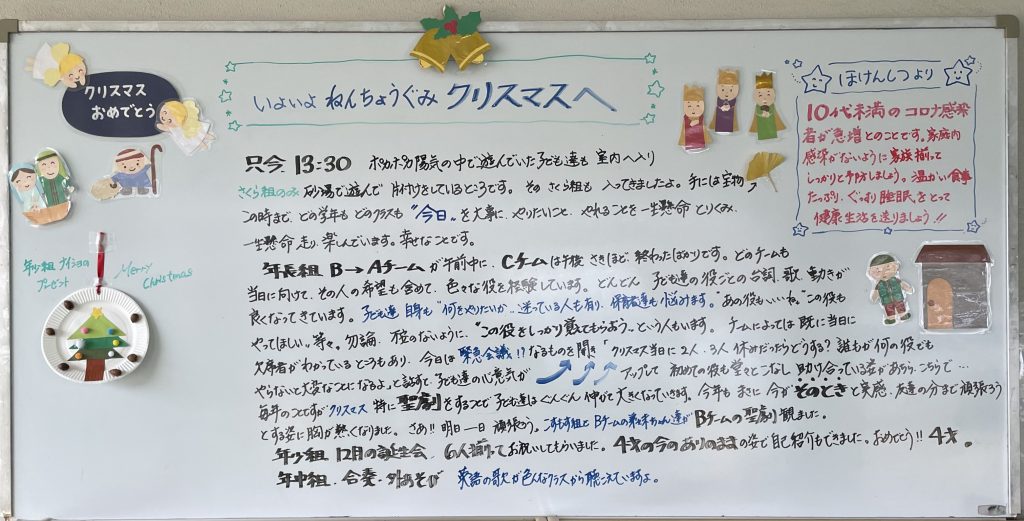 クリスマス
おめでとう
いよいよ ねんちょうぐみ クリスマスへ
ほけんしつより
10代未満のコロナ感染
者が急増とのことです。家庭内
感染がないように家族揃って
しっかりと予防しましょう。温かい食事
たっぷり、ぐっすり睡眠をとって
健康生活を送りましょう!!
只今 13:30 ポカポカ陽気の中で遊んでいた子ども達も 室内へ入り
さくら組のみ 砂場で遊んで 片付けをしているところです。その さくら組も 入ってきましたよ。手には宝物
この時まで、どの学年も どのクラスも “今日„ を大事に、やりたいこと、やれることを一生懸命 とりくみ、
一生懸命 走り、楽しんでいます。幸せなことです。
年長組 B→Aチームが午前中に、Cチームは午後 さきほど 終わったばかりです。どのチームも
当日に向けて、その人の希望も含めて、色々な役を経験しています。どんどん 子ども達の役ごとの台詞、歌、動きが
良くなってきています。子ども達 自身も “何をやりたいか„ 迷っている人も有り、保育者達も悩みます。“あの役もいいね„“この役も
やってほしい„等々。勿論、のないように、“この役をしっかり覚えてもらおう„という人もいます。チームによっては 既に当日に
欠席者がわかっているところもあり、今日は 緊急会議!?なるものを開き「クリスマス当日に2人、3人休みだったらどうする?誰もが何の役でも
やらないと大変なことになるよ」と話すと、子ども達の心意気が アップして 初めての役も堂々とこなし 助け合っている姿が あちら、こちらで…
毎年のことですが クリスマス 特に 聖劇をすることで 子ども達はぐんぐん伸びて 大きくなっていきます。今年も まさに 今が そのときと実感、友達の分まで頑張ろう
とする姿に胸が熱くなりました。さあ!!明日一日 頑張ろう。こすもす組と Bチームの弟妹ちゃん達が Bチームの聖劇 観ました。
年少組 12月の誕生会 6人揃ってお祝いしてもらいました。4才の今のありのままの姿で自己紹介もできました。おめでとう!!4才。
年中組 合奏・外あそび 英語の歌が色んなクラスから聴こえていますよ。
年少組 ナイショの
プレゼント
Merry
Christmas